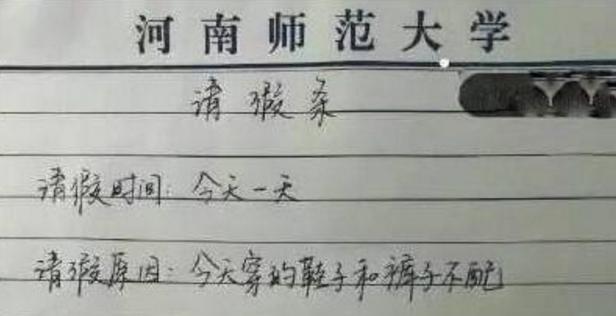 河南师范大学
请假条
请假时间：今天一天
请假原因：今天穿的鞋子和裤子不配